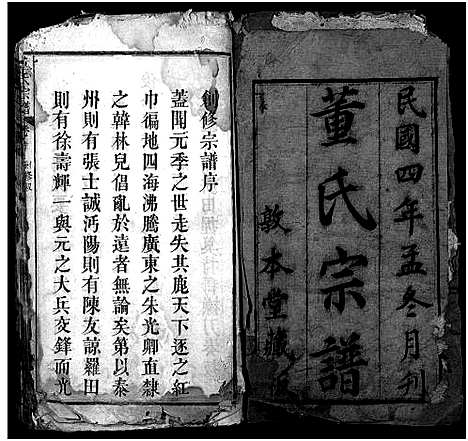 民國四年孟冬月刊
董氏宗譜
敦本堂藏
創修宗譜序
蓋聞元季之世走失其鹿天下逐之紅
巾徧地四海沸騰廣東之朱光卿直隸
之韓林兒倡亂於遠者無論矣第以泰
州則有張士誠沔陽則有陳友諒羅田
則有徐壽輝一與元之大兵交鋒而光